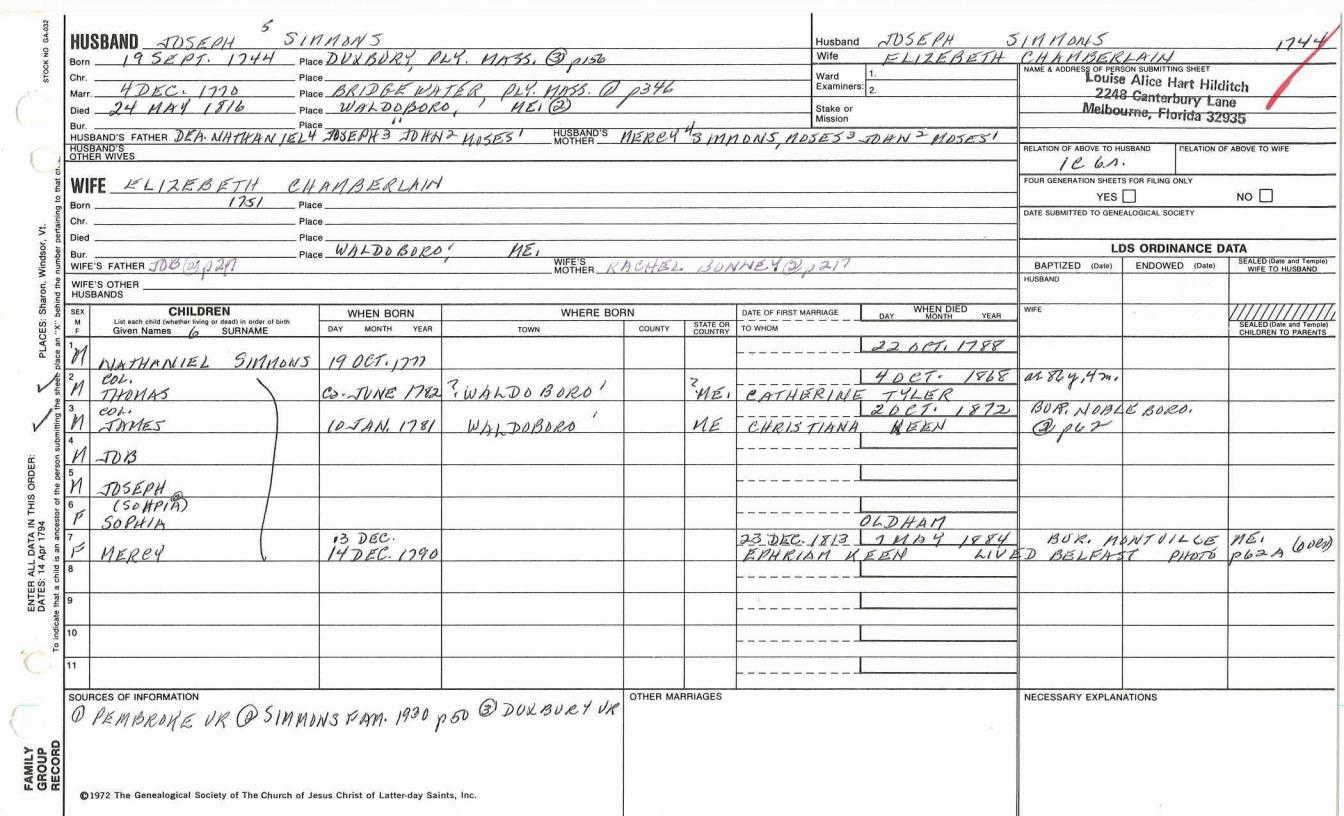 STOCK NO GA-032
PLACES: Sharon, Windsor, Vt.
ENTER ALL DATA IN THIS ORDER:
DATES: 14 Apr 1794
To indicate that a child is an ancestor of the person submitting the sheet, place an "X" behind the number pertaining to that ch...
FAMILY GROUP RECORD
HUSBAND JOSEPH 5 SIMMONS
Born 19 SEPT. 1744 Place DUXBURY, PLY. MASS. ③ p156
Chr. Place
Marr. 4 DEC. 1770 Place BRIDGEWATER PLY. MASS. ① p346
Died 24 MAY 1816 Place WALDOBORO, ' ME. ②
Bur. Place "
HUSBAND'S FATHER DEA. NATHANIEL 4 JOSEPH 3 JOHN 2 MOSES 1 HUSBAND'S MOTHER MERCY 4 SIMMONS, MOSES 3 JOHN 2 MOSES 1
HUSBAND'S OTHER WIVES
WIFE ELIZEBETH CHAMBERLAIN
Born 1751 Place
Chr. Place
Died Place
Bur. Place WALDOBORO' ME.
WIFE'S FATHER JOB ② p217 WIFE'S MOTHER RACHEL BONNEY ② p217
WIFE'S OTHER HUSBANDS
Husband JOSEPH SIMMONS 1744
Wife ELIZEBETH CHAMBERLAIN
Ward Examiners: 1. 2.
Stake or Mission
NAME & ADDRESS OF PERSON SUBMITTING SHEET
Louise Alice Hart Hilditch
2248 Canterbury Lane
Melbourne, Florida 32935
RELATION OF ABOVE TO HUSBAND RELATION OF ABOVE TO WIFE
1C 6r.
FOUR GENERATION SHEETS FOR FILING ONLY
YES NO
DATE SUBMITTED TO GENEALOGICAL SOCIETY
LDS ORDINANCE DATA
BAPTIZED (Date) ENDOWED (Date) SEALED (Date and Temple) WIFE TO HUSBAND
HUSBAND
WIFE
SEALED (Date and Temple) CHILDREN TO PARENTS
SEX M F CHILDREN WHEN BORN WHERE BORN DATE OF FIRST MARRIAGE WHEN DIED
List each child (whether living or dead) in order of birth
Given Names 6 SURNAME DAY MONTH YEAR TOWN COUNTY STATE OR COUNTRY TO WHOM DAY MONTH YEAR
22 OCT. 1788
1 M NATHANIEL SIMMONS 19 OCT. 1777
2 COL. 4 OCT. 1868 as 86 y, 4 m.
M THOMAS Co. JUNE 1782 ? WALDOBORO' ? ME. CATHERINE TYLER
3 COL. 2 OCT. 1872 BUR. NOBLEBORO.
M JAMES 10 JAN. 1781 WALDOBORO' ME CHRISTIANA KEEN ② p62
4 M JOB
5 M JOSEPH
6 (SOHPIA) ②
F SOPHIA OLDHAM
7 13 DEC. 23 DEC. 1813 7 MAY 1884 BUR. MONTVILLE ME. (over)
F MERCY 14 DEC. 1790 EPHRIAM KEEN LIVED BELFAST PHOTO p62A
8
9
10
11
SOURCES OF INFORMATION OTHER MARRIAGES NECESSARY EXPLANATIONS
① PEMBROKE VR ② SIMMONS FAM. 1930 p50 ③ DUXBURY VR
©1972 The Genealogical Society of The Church of Jesus Christ of Latter-day Saints, Inc.